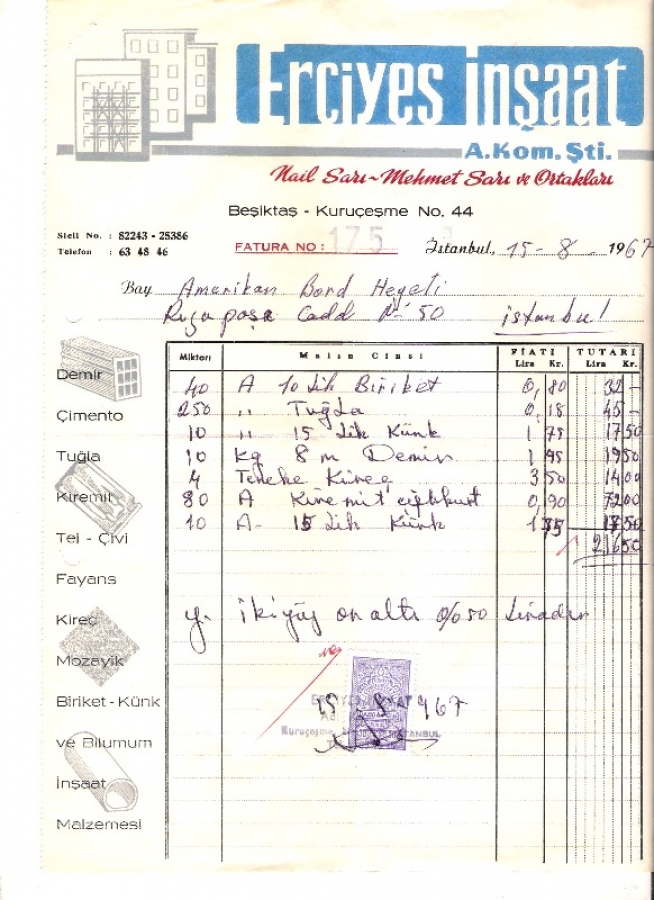 Erciyes İnşaat
A.Kom.Şti.
Nail Sarı - Mehmet Sarı ve Ortakları
Beşiktaş - Kuruçeşme No. 44
Sicil No. : 82243 - 25386
Telefon : 63 48 46
FATURA NO: 175
İstanbul, 15 - 8 - 1967
Bay Amerikan Bord Heyeti
Rıza paşa Cadd No 50 istanbul
Miktarı Malın Cinsi FİATI TUTARI
Lira Kr. Lira Kr.
40 A 10 luk Biriket 0,80 32 -
250 ,, Tuğla 0,18 45 -
10 ,, 15 lik Künk 1 75 17 50
10 Kg 8 m Demir 1 95 19 50
4 Teneke Kireç 3 50 14 00
80 A Kiremit 0,90 72 00
10 A- 15 lik Künk 1 75 17 50
216 50
Y. ikiyüz on altı 0/0 50 liradır
15 - 8 - 967
ERCİYES İNŞAAT
Kuruçeşme İSTANBUL
Demir
Çimento
Tuğla
Kiremit
Tel - Çivi
Fayans
Kireç
Mozayik
Biriket - Künk
ve Bilumum
İnşaat
Malzemesi